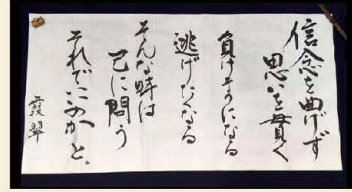 信念を曲げず
思いを貫く
負けそうになる
逃げたくなる
そんな時は
己に問う
それでいいのかと、
霞翠